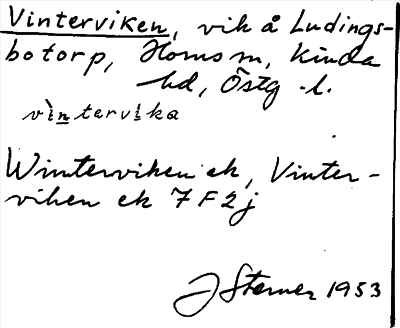 Vinterviken, vik å Ludings-
botorp, Horns sn, Kinda
hd, Östg. l.
vìntervika
Winterviken ek, Vinter-
viken ek 7 F 2 j
J Sterner 1953